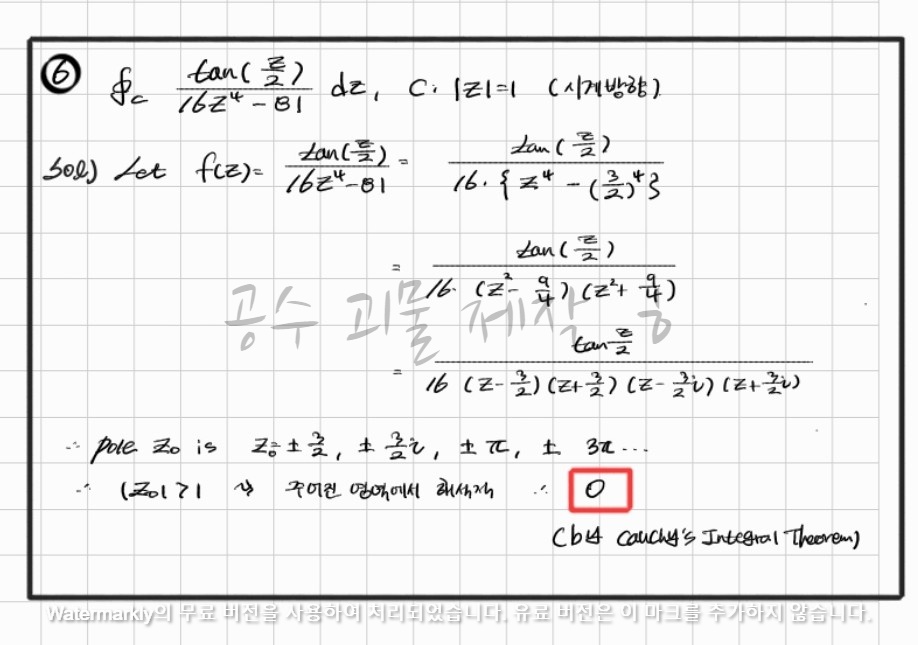 ⑥ ∮c tan(z/2) / 16z⁴ - 81 dz, C: |z|=1 (시계방향)
sol) Let f(z)= tan(z/2) / 16z⁴-81 = tan(z/2) / 16·{z⁴ - (3/2)⁴}
= tan(z/2) / 16·(z² - 9/4)(z² + 9/4)
공수 괴물 제작 중
= tan z/2 / 16 (z - 3/2)(z + 3/2)(z - 3/2 i)(z + 3/2 i)
∴ pole z₀ is z₀=± 3/2, ± 3/2 i, ± π, ± 3π ...
∴ |z₀|>1 → 주어진 영역에서 해석적 ∴ 0
(by Cauchy's Integral Theorem)
Watermarkly의 무료 버전을 사용하여 처리되었습니다. 유료 버전은 이 마크를 추가하지 않습니다.